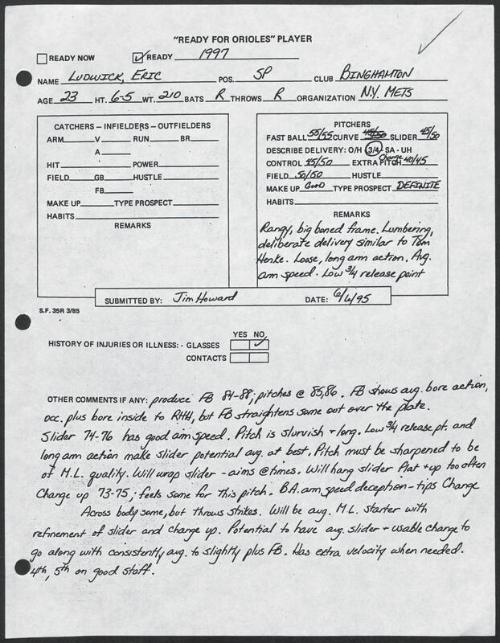 "READY FOR ORIOLES" PLAYER
READY NOW ✓ READY 1997
NAME LUDWICK, ERIC POS. SP CLUB BINGHAMTON
AGE 23 HT. 6-5 WT. 210 BATS R THROWS R ORGANIZATION N.Y. METS
CATCHERS - INFIELDERS - OUTFIELDERS
ARM V RUN BR
A
HIT POWER
FIELD GB HUSTLE
FB
MAKE UP TYPE PROSPECT
HABITS
REMARKS
PITCHERS
FAST BALL 55/55 CURVE SLIDER 45/50
DESCRIBE DELIVERY: O/H 3/4 SA - UH
CONTROL 45/50 EXTRA PITCH Change 40/45
FIELD 50/50 HUSTLE
MAKE UP Good TYPE PROSPECT DEFINITE
HABITS
REMARKS
Rangy, big boned frame. Lumbering,
deliberate delivery similar to Tom
Henke. Loose, long arm action. Avg.
arm speed. Low 3/4 release point
SUBMITTED BY: Jim Howard DATE: 6/6/95
S.F. 35R 3/85
YES NO
HISTORY OF INJURIES OR ILLNESS: - GLASSES ✓
CONTACTS
OTHER COMMENTS IF ANY: produce FB 84-88; pitches @ 85,86. FB shows avg. bore action,
occ. plus bore inside to RHH, but FB straightens some out over the plate.
Slider 74-76 has good arm speed. Pitch is slurvish + long. Low 3/4 release pt. and
long arm action make slider potential avg. at best. Pitch must be sharpened to be
of M.L. quality. Will wrap slider - aims @ times. Will hang slider flat + up too often
Change up 73-75; feels some for this pitch. B.A. arm speed deception - tips Change
Across body some, but throws strikes. Will be avg. M.L. starter with
refinement of slider and change up. Potential to have avg. slider + usable change to
go along with consistently avg. to slightly plus FB. Has extra velocity when needed.
4th, 5th on good staff.